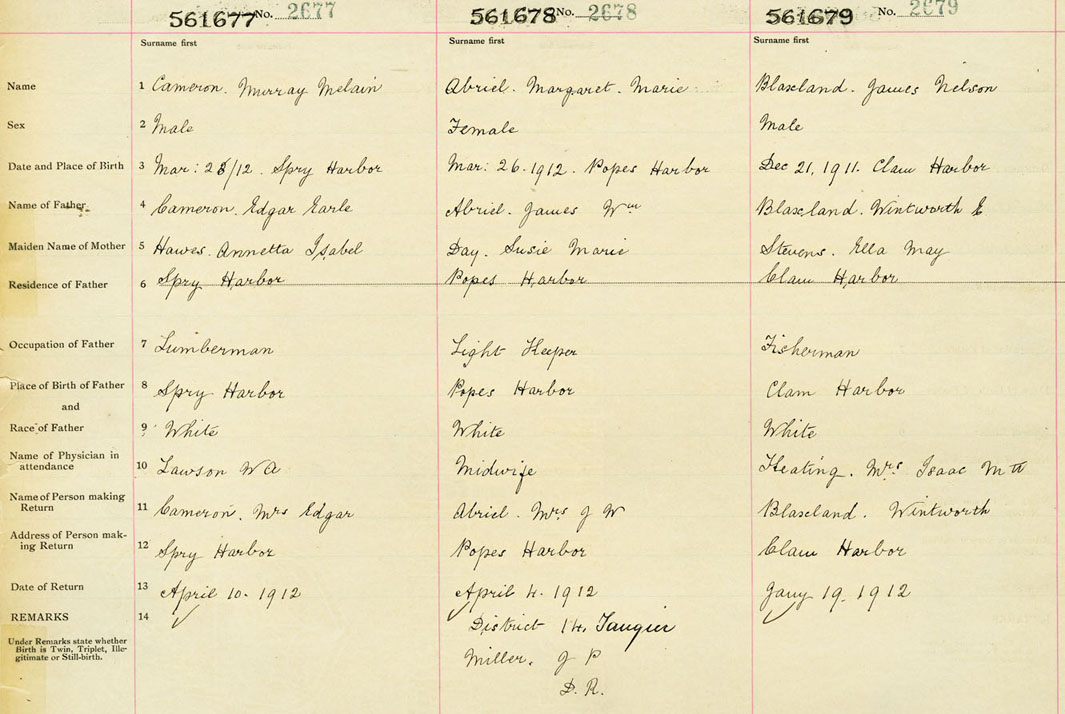 561677 No. 2677 561678 No. 2678 561679 No. 2679
Surname first Surname first Surname first
Name 1 Cameron. Murray Melain Abriel. Margaret. Marie Blaxland. James Nelson
Sex 2 Male Female Male
Date and Place of Birth 3 Mar: 28/12. Spry Harbor Mar: 26. 1912. Popes Harbor Dec 21, 1911. Clam Harbor
Name of Father 4 Cameron. Edgar Earle Abriel. James Wm Blaxland. Wintworth E
Maiden Name of Mother 5 Hawes. Annetta Isabel Day. Susie Marie Stevens. Ella May
Residence of Father 6 Spry Harbor Popes Harbor Clam Harbor
Occupation of Father 7 Lumberman Light Keeper Fisherman
Place of Birth of Father 8 Spry Harbor Popes Harbor Clam Harbor
and
Race of Father 9 White White White
Name of Physician in
attendance 10 Lawson W A Midwife Keating. Mrs Isaac M
Name of Person making
Return 11 Cameron. Mrs Edgar Abriel. Mrs J W Blaxland. Wintworth
Address of Person mak-
ing Return 12 Spry Harbor Popes Harbor Clam Harbor
Date of Return 13 April 10. 1912 April 4. 1912 Jany 19. 1912
REMARKS 14 District 14. Tangier
Under Remarks state whether
Birth is Twin, Triplet, Ille-
gitimate or Still-birth.
Miller. J P
D. R.